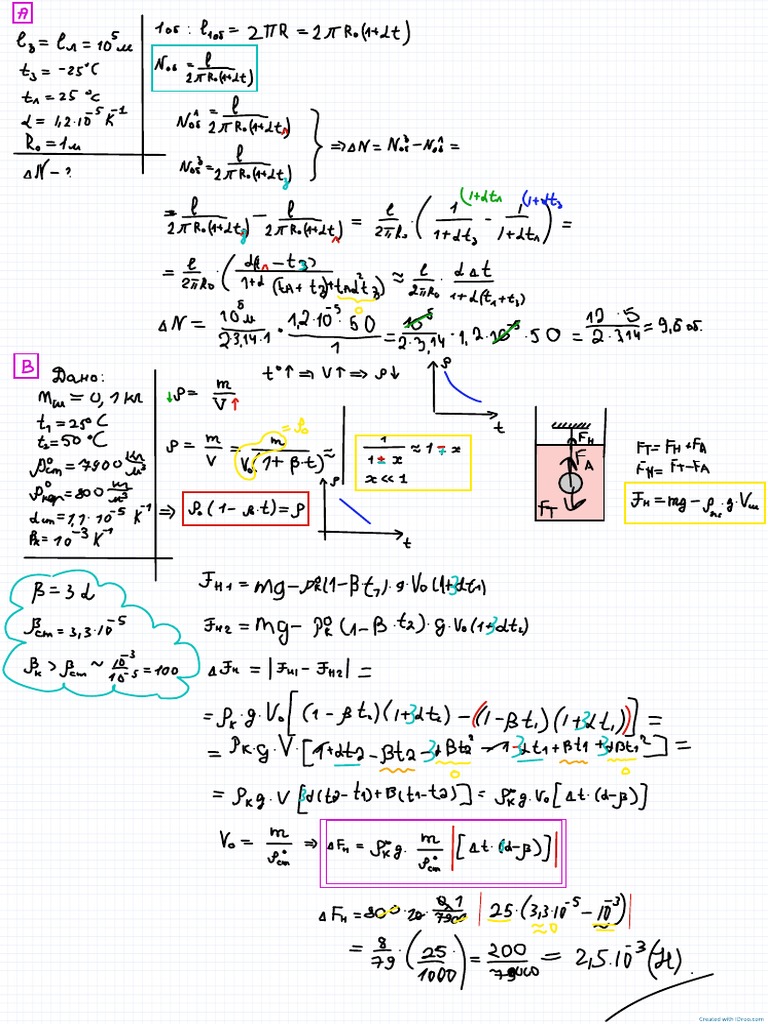 A
l₃ = l_л = 10⁵ м
t₃ = -25°C
t_л = 25°C
α = 1,2·10⁻⁵ K⁻¹
R₀ = 1м
ΔN - ?
1об : l₁об = 2πR = 2πR₀(1+αt)
Nоб = l / 2πR₀(1+αt)
Nоб^л = l / 2πR₀(1+αt_л)
Nоб^з = l / 2πR₀(1+αt₃)
} ⇒ ΔN = Nоб^з - Nоб^л =
= l / 2πR₀(1+αt₃) - l / 2πR₀(1+αt_л) = l / 2πR₀ · (1 / 1+αt₃ - 1 / 1+αt_л) =
(1+αt_л (1+αt₃
= l / 2πR₀ · (α(t_л - t₃) / 1+α(t_л + t₃)+t_лα²t₃) ≈ l / 2πR₀ · αΔt / 1+α(t_л+t₃)
0
ΔN = 10⁵м / 2·3,14·1 · 1,2·10⁻⁵·50 / 1 = 10⁵ / 2·3,14 · 1,2·10⁻⁵·50 = 12·5 / 2·3,14 = 9,6 об.
B
Дано:
mш = 0,1 кг
t₁ = 25°C
t₂ = 50°C
ρ°ст = 7900 кг/м³
ρ°кер = 800 кг/м³
αст = 1,1·10⁻⁵ K⁻¹
βк = 10⁻³ K⁻¹
t°↑ ⇒ V↑ ⇒ ρ↓
↓ρ = m / V↑
ρ
t
ρ = m / V = m / V₀(1+β·t) ≈
= ρ₀
1 / 1±x ≈ 1∓x
x << 1
⇒ ρ₀(1-β·t) = ρ
ρ
t
Fн
FА
Fт
Fт = Fн + FА
Fн = Fт - FА
Fн = mg - ρ·g·Vш
β = 3α
βст = 3,3·10⁻⁵
βк > βст ~ 10⁻³ / 10⁻⁵ = 100
Fн1 = mg - ρ°к(1-βt₁)·g·V₀(1+3αt₁)
Fн2 = mg - ρ°к(1-β·t₂)·g·V₀(1+3αt₂)
ΔFн = |Fн1 - Fн2| =
= ρк·g·V₀[(1-βt₂)(1+3αt₂) - ((1-βt₁)(1+3αt₁))] =
= ρк·g·V·[1+3αt2 - βt2 - 3αβt2² - 1 - 3αt1 + βt1 + 3αβt1²] =
0 0
= ρкg·V[3α(t₂-t₁)+β(t₁-t₂)] = ρ°кg·V₀[Δt·(α-β)]
V₀ = m / ρ°ст ⇒ ΔFн = ρ°кg· m / ρ°ст |[Δt·(3α-β)]|
ΔFн = 800·10· 0,1 / 7900 |25·(3,3·10⁻⁵ - 10⁻³)|
≈0
= 8 / 79 · (25 / 1000) = 200 / 79000 = 2,5·10⁻³ (Н)
Created with iDroo.com